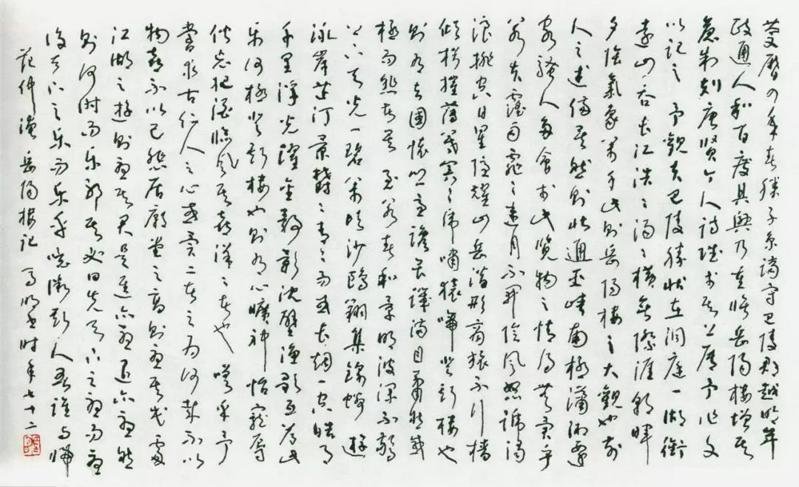 慶曆四年春滕子京謫守巴陵郡越明年
政通人和百廢具興乃重修岳陽樓增其
舊制刻唐賢今人詩賦於其上屬予作文
以記之予觀夫巴陵勝狀在洞庭一湖銜
遠山吞長江浩々湯々橫無際涯朝暉
夕陰氣象萬千此則岳陽樓之大觀也前
人之述備矣然則北通巫峽南極瀟湘遷
客騷人多會於此覽物之情得無異乎
若夫霪雨霏々連月不開陰風怒號濁
浪排空日星隱耀山岳潛形商旅不行檣
傾楫摧薄暮冥々虎嘯猿啼登斯樓也
則有去國懷鄉憂讒畏譏滿目蕭然感
極而悲者矣至若春和景明波瀾不驚
上下天光一碧萬頃沙鷗翔集錦鱗游
泳岸芷汀蘭郁々青々而或長煙一空皓月
千里浮光躍金靜影沈璧漁歌互答此
樂何極登斯樓也則有心曠神怡寵辱
偕忘把酒臨風其喜洋々者也嗟乎予
嘗求古仁人之心或異二者之為何哉不以
物喜不以己悲居廟堂之高則憂其民處
江湖之遠則憂其君是進亦憂退亦憂然
則何時而樂耶其必曰先天下之憂而憂
後天下之樂而樂乎噫微斯人吾誰與歸
范仲淹岳陽樓記 時年七十二